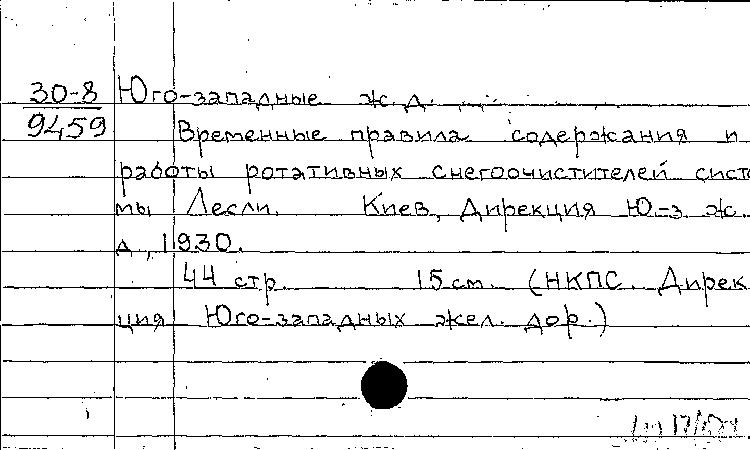 30-8 Юго-западные ж. д.
9459 Временные правила содержания и
работы ротативных снегоочистителей систе
мы Лесли. Киев, Дирекция Ю.-з. ж.
д., 1930.
44 стр. 15 см. (НКПС. Дирек
ция Юго-западных жел. дор.)